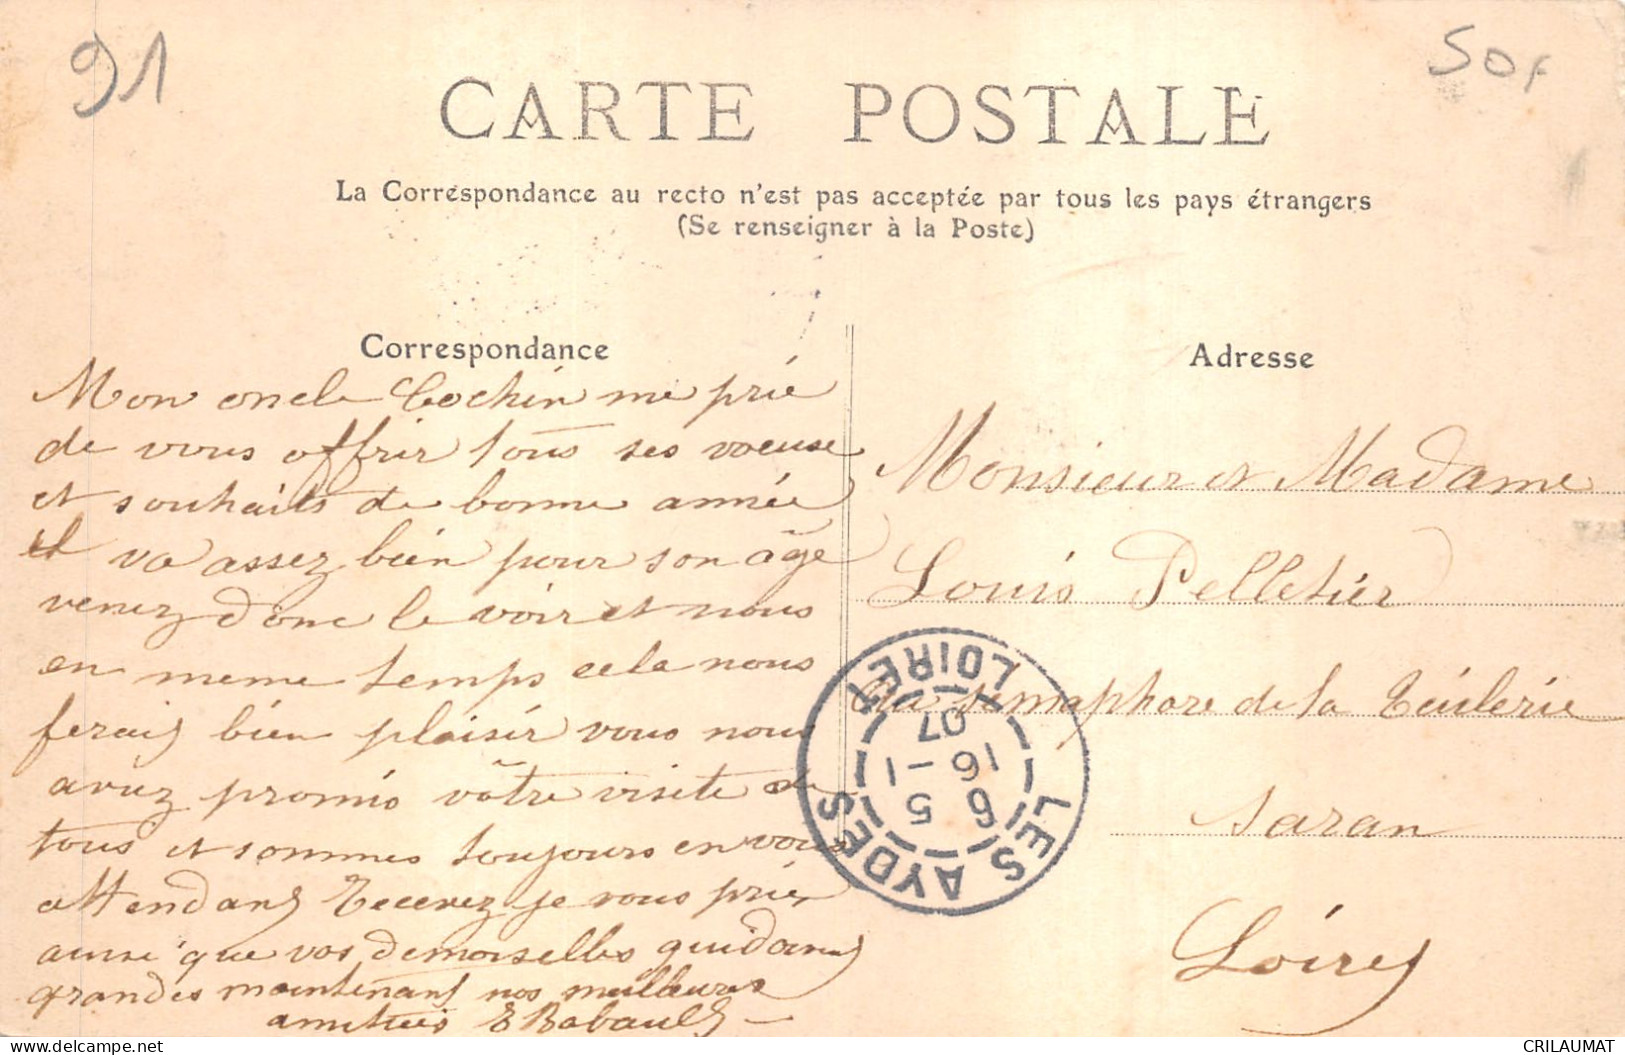 91
50F
CARTE POSTALE
La Correspondance au recto n'est pas acceptée par tous les pays étrangers
(Se renseigner à la Poste)
Correspondance
Mon oncle Cochin me prie
de vous offrir tous ses voeuse
et souhaits de bonne année
il va assez bien pour son âge
venez donc le voir et nous
en meme temps cela nous
ferais bien plaisir vous nous
avez promis vôtre visite a
tous et sommes toujours en vous
attendans Recevez je vous prie
ainsi que vos demoiselles qui dans
grandes maintenant nos meilleures
amitiées E Babault
Adresse
Monsieur et Madame
Louis Pelletier
semaphore de la Tuilerie
Saran
Loiret
LES AYDES LOIRET
6 5
16 -1
07
delcampe.net
CRILAUMAT